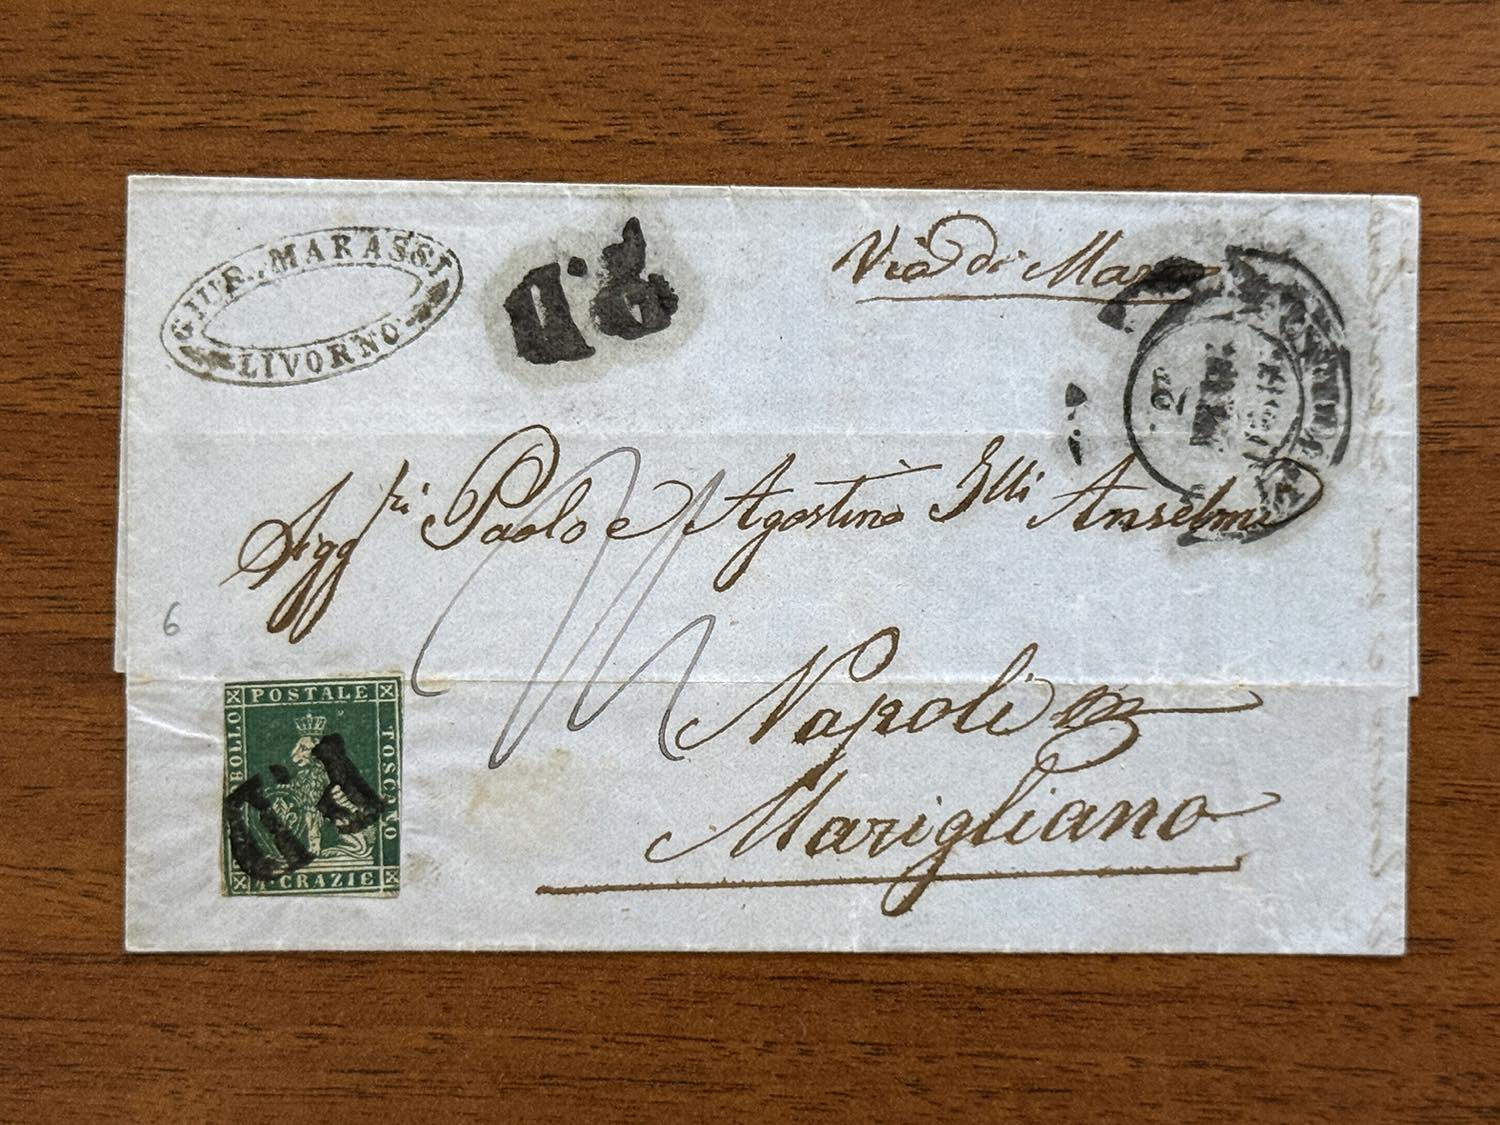 GIUS. MARASSI
LIVORNO
P.D.
Via di Mare
Sigg.ri Paolo e Agostino Flli Anselmi
Napoli
Marigliano
6
BOLLO POSTALE TOSCANO
4. CRAZIE
P.D.